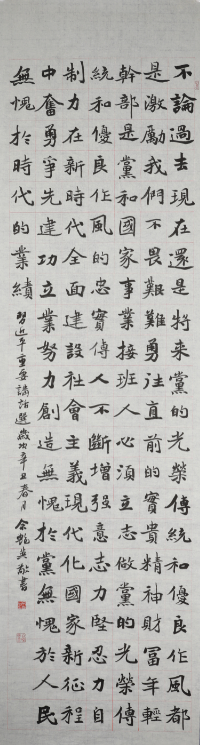 不論過去現在還是將來黨的光榮傳統和優良作風都
是激勵我們不畏艱難勇往直前的寶貴精神財富年輕
幹部是黨和國家事業接班人必須立志做黨的光榮傳
統和優良作風的忠實傳人不斷增强意志力堅忍力自
制力在新時代全面建設社會主義現代化國家新征程
中奮勇爭先建功立業努力創造無愧於黨無愧於人民
無愧於時代的業績 習近平重要講話選 歲次辛丑春月 余乾英敬書